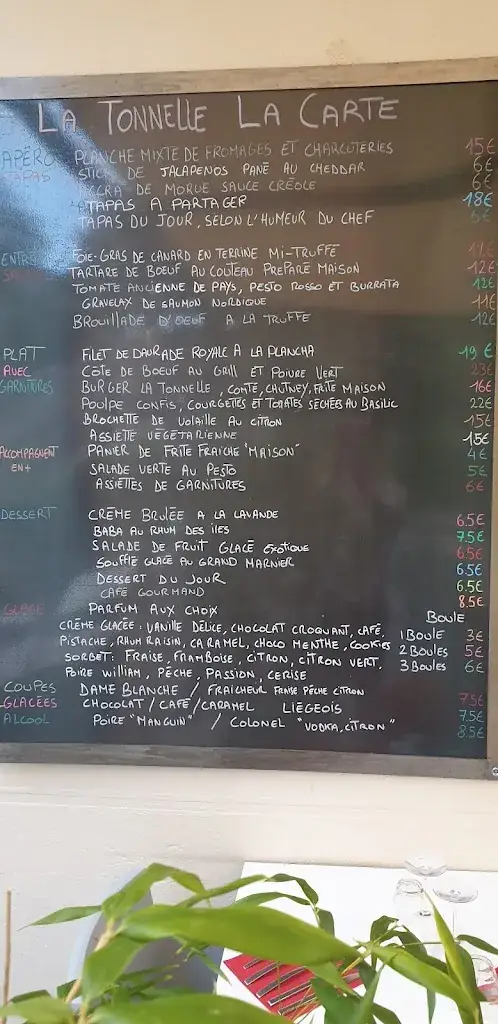 LA TONNELLE LA CARTE
APÉRO PLANCHE MIXTE DE FROMAGES ET CHARCUTERIES 15€
TAPAS STICK DE JALAPENOS PANÉ AU CHEDDAR 6€
ACCRA DE MORUE SAUCE CRÉOLE 6€
TAPAS A PARTAGER 18€
TAPAS DU JOUR, SELON L'HUMEUR DU CHEF
FOIE-GRAS DE CANARD EN TERRINE MI-TRUFFE
TARTARE DE BOEUF AU COUTEAU PRÉPARÉ MAISON 12€
TOMATE ANCIENNE DE PAYS, PESTO ROSSO ET BURRATA 12€
GRAVELAX DE SAUMON NORDIQUE 11€
BROUILLADE D'OEUF A LA TRUFFE 12€
PLAT FILET DE DAURADE ROYALE A LA PLANCHA 19€
AVEC CÔTE DE BOEUF AU GRILL ET POIVRE VERT 23€
GARNITURES BURGER LA TONNELLE, COMTÉ, CHUTNEY, FAITE MAISON 16€
POULPE CONFIS, COURGETTES ET TOMATES SÉCHÉES AU BASILIC 22€
BROCHETTE DE VOLAILLE AU CITRON 15€
ASSIETTE VÉGÉTARIENNE 15€
ACCOMPAGNEMENT PANIER DE FRITE FRAICHE "MAISON" 4€
EN + SALADE VERTE AU PESTO 5€
ASSIETTES DE GARNITURES 6€
DESSERT CRÈME BRULÉE A LA LAVANDE 6.5€
BABA AU RHUM DES ÎLES 7.5€
SALADE DE FRUIT GLACÉ EXOTIQUE 6.5€
SOUFFLÉ GLACÉ AU GRAND MARNIER 6.5€
DESSERT DU JOUR 6.5€
CAFÉ GOURMAND 8.5€
GLACE PARFUM AUX CHOIX Boule
CRÈME GLACÉE: VANILLE DÉLICE, CHOCOLAT CROQUANT, CAFÉ, 1 Boule 3€
PISTACHE, RHUM RAISIN, CARAMEL, CHOCO MENTHE, COOKIES 2 Boules 5€
SORBET: FRAISE, FRAMBOISE, CITRON, CITRON VERT, 3 Boules 6€
POIRE WILLIAM, PÊCHE, PASSION, CERISE
COUPES DAME BLANCHE / FRAICHEUR FRAISE PÊCHE CITRON 7.5€
GLACÉES CHOCOLAT / CAFÉ / CARAMEL LIÉGEOIS 7.5€
ALCOOL POIRE "MANGUIN" / COLONEL "VODKA, CITRON" 8.5€